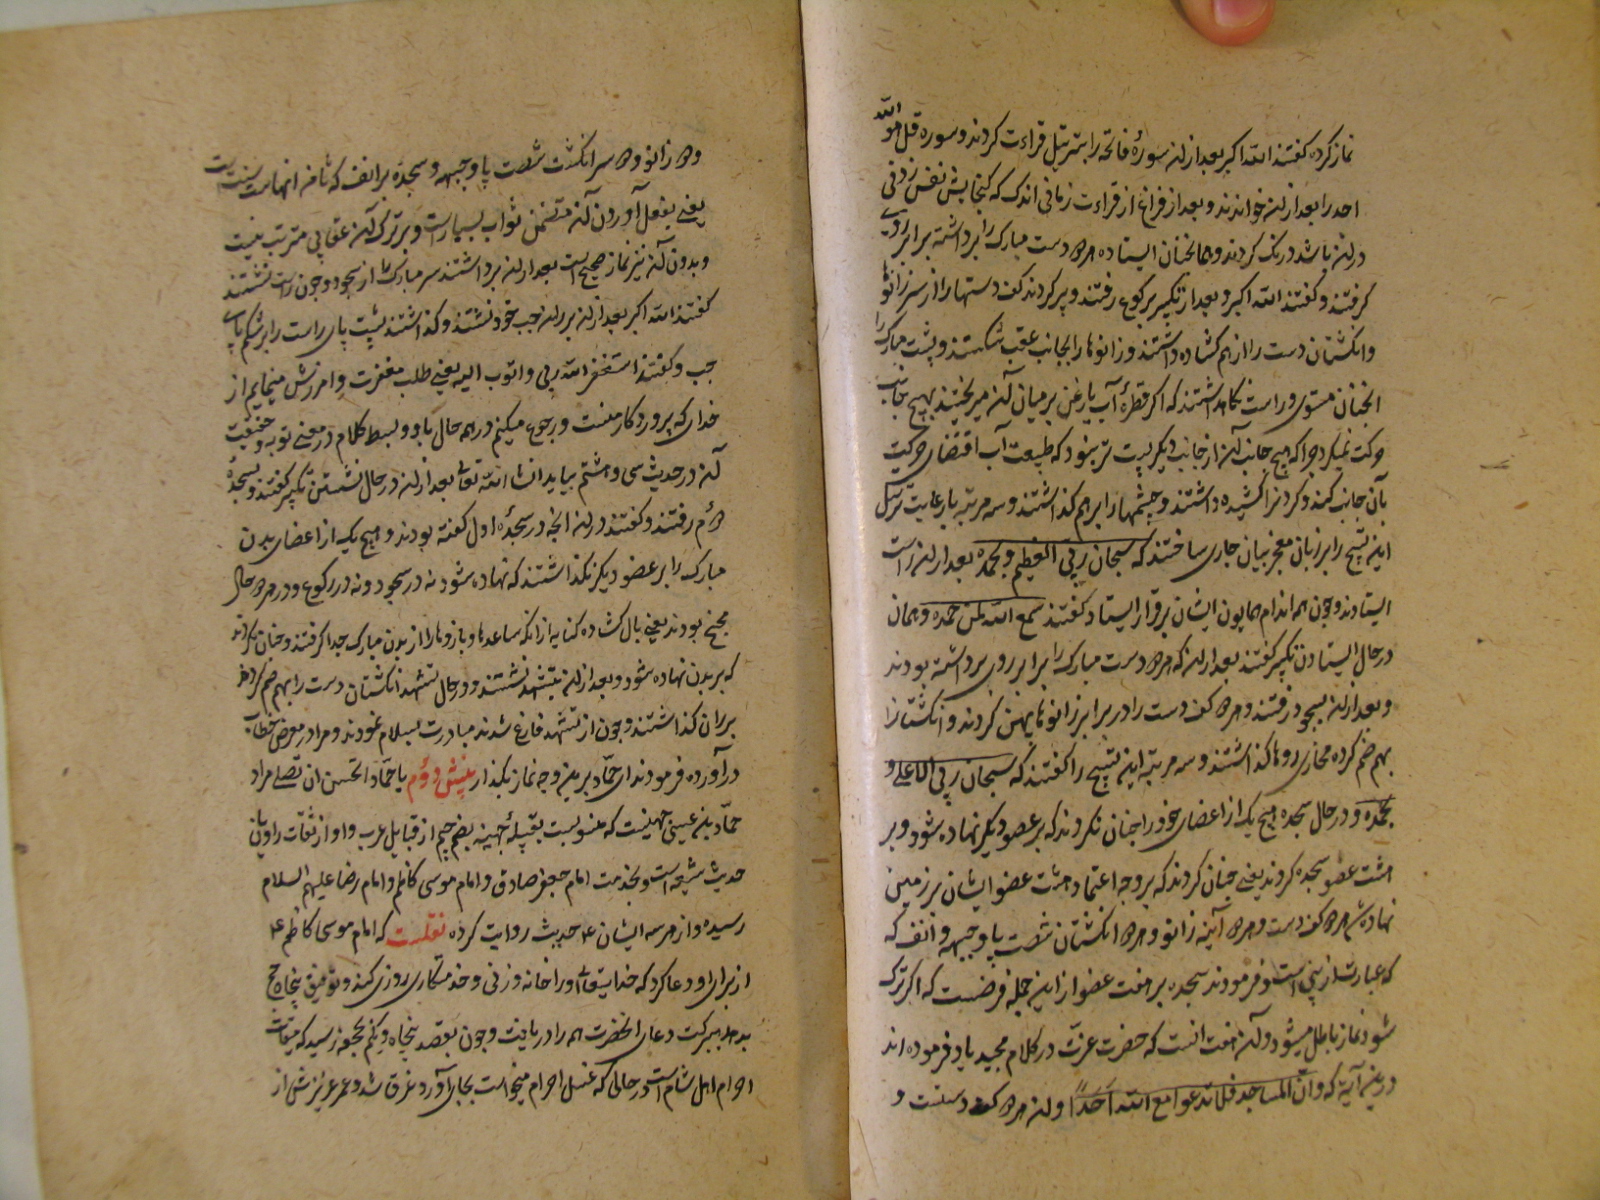 نماز کرده گفتند الله اکبر بعد از ان سورهٔ فاتحه را بترتیل قراءت کردند و سوره قل هو الله
احد را بعد از ان خواندند و بعد از فراغ از قراءت زمانی اندک که گنجایش نفس زدنی
در ان باشد درنک کردند و همانچنان ایستاده هر دو دست مبارک را برداشته برابر روی
گرفتند و گفتند الله اکبر و بعد از تکبیر برکوع رفتند و پر کردند کف دستها را از سر زانوها
و انکشتان دست را از هم کشاده داشتند و زانوها را بجانب عقب شکستند و پشت مبارک را
انچنان مستوی و راست نکاه داشتند که اکر قطرهٔ آب یا روغن بر میان آن میریختند بهیچ جانب
حرکت نمیکرد چرا که هیچ جانب آن از جانب دیکر پست تر نبود که طبیعت آب اقتضای حرکت
بآن جانب کند و کردن را کشیده داشتند و چشمها را بر هم گذاشتند و سه مرتبه با رعایت ترتیل
این تسبیح را بر زبان معجز بیان جاری ساختند که سبحان ربی العظیم و بحمده بعد از ان راست
ایستادند و چون همه اندام همایون ایشان برقرار ایستاد گفتند سمع الله لمن حمده و همان
در حال ایستادن تکبیر گفتند بعد از ان که هر دو دست مبارک را برابر روی برداشته بودند
و بعد از ان بسجود رفتند و هر دو کف دست را در برابر زانوها پهن کردند و انکشتانرا
بهم ضم کرده محاذی روها گذاشتند و سه مرتبه این تسبیح را گفتند که سبحان ربی الاعلی و
بحمده و در حال سجده هیچ یک از اعضای خود را چنان نکردند که بر عضو دیکر نهاده شود و بر
هشت عضو سجده کردند یعنی چنان کردند که بر وجه اعتماد هشت عضو ایشان بر زمین
نهاده شد هر دو کف دست و هر دو آینه زانو و هر دو انکشتان شصت پا و جبهه و انف که
که عبارت از بینی است و فرمودند سجده بر هفت عضو از این جمله فرضست که اکر ترک
شود نماز باطل میشود و آن هفت انست که حضرت عزت در کلام مجید یاد فرموده اند
درین آیه که و ان المساجد فلا تدعوا مع الله احدا و ان هر دو کف دستست و
و دو زانو و دو سر انکشت شصت پا و جبهه و سجده بر انف که ثامن انهاست سنت است
یعنی بفعل آوردن آن متضمن ثواب بسیار است و بر ترک آن عقابی مترتب نیست
و بدون آن نیز نماز صحیح است بعد از ان برداشتند سر مبارک را از سجود و چون راست نشستند
گفتند الله اکبر بعد از ان بر ران چپ خود نشستند و گذاشتند پشت پای راست را بر شکم پای
چپ و گفتند استغفر الله ربی و اتوب الیه یعنی طلب مغفرت و امرزش مینمایم از
خدای که پروردکار منست و رجوع میکنم در همه حال باو و بسط کلام در معنی توبه و حقیقت
آن در حدیث سی و هشتم بیاید انشاء الله تعالی بعد از ان در حال نشستن تکبیر گفتند و بسجدهٔ
دوم رفتند و گفتند در ان انچه در سجدهٔ اول گفته بودند و هیچ یک از اعضای بدن
مبارک را بر عضو دیکر نگذاشتند که نهاده شود نه در سجود و نه در رکوع و در هر دو حال
مجنح بودند یعنی بال کشاده کنایه از انکه ساعدها و بازوها را از بدن مبارک جدا گرفتند و چنان نکردند
که بر بدن نهاده شود و بعد از ان بتشهد نشستند و در حال تشهد انکشتان دست را بهم ضم کرده
بر ران گذاشتند و چون از تشهد فارغ شدند مبادرت بسلام نمودند و مرا در معرض خطاب
درآورده فرمودند ای حماد برین وجه نماز بکذار بینش دوم یا حماد اتحسن ان تصلی مراد
حماد بن عیسی جهنیست که منسوبست بقبیلهٔ جهینه بضم جیم از قبایل عرب و او از ثقات راویان
حدیث شیعه است و بخدمت امام جعفر صادق و امام موسی کاظم و امام رضا علیهم السلام
رسیده و از هر سه ایشان ع حدیث روایت کرده نقلست که امام موسی کاظم ع
از برای او دعا کرد که خدایتعالی او را خانه و زنی و خدمتکاری روزی کند و توفیق پنجاه حج
بدهد ببرکت دعای انحضرت همه را دریافت و چون بقصد پنجاه و یکم بجحفه رسید که میقات
احرام اهل شام است در حالی که غسل احرام میخواست بجای آورد غرق شد و عمر عزیزش از